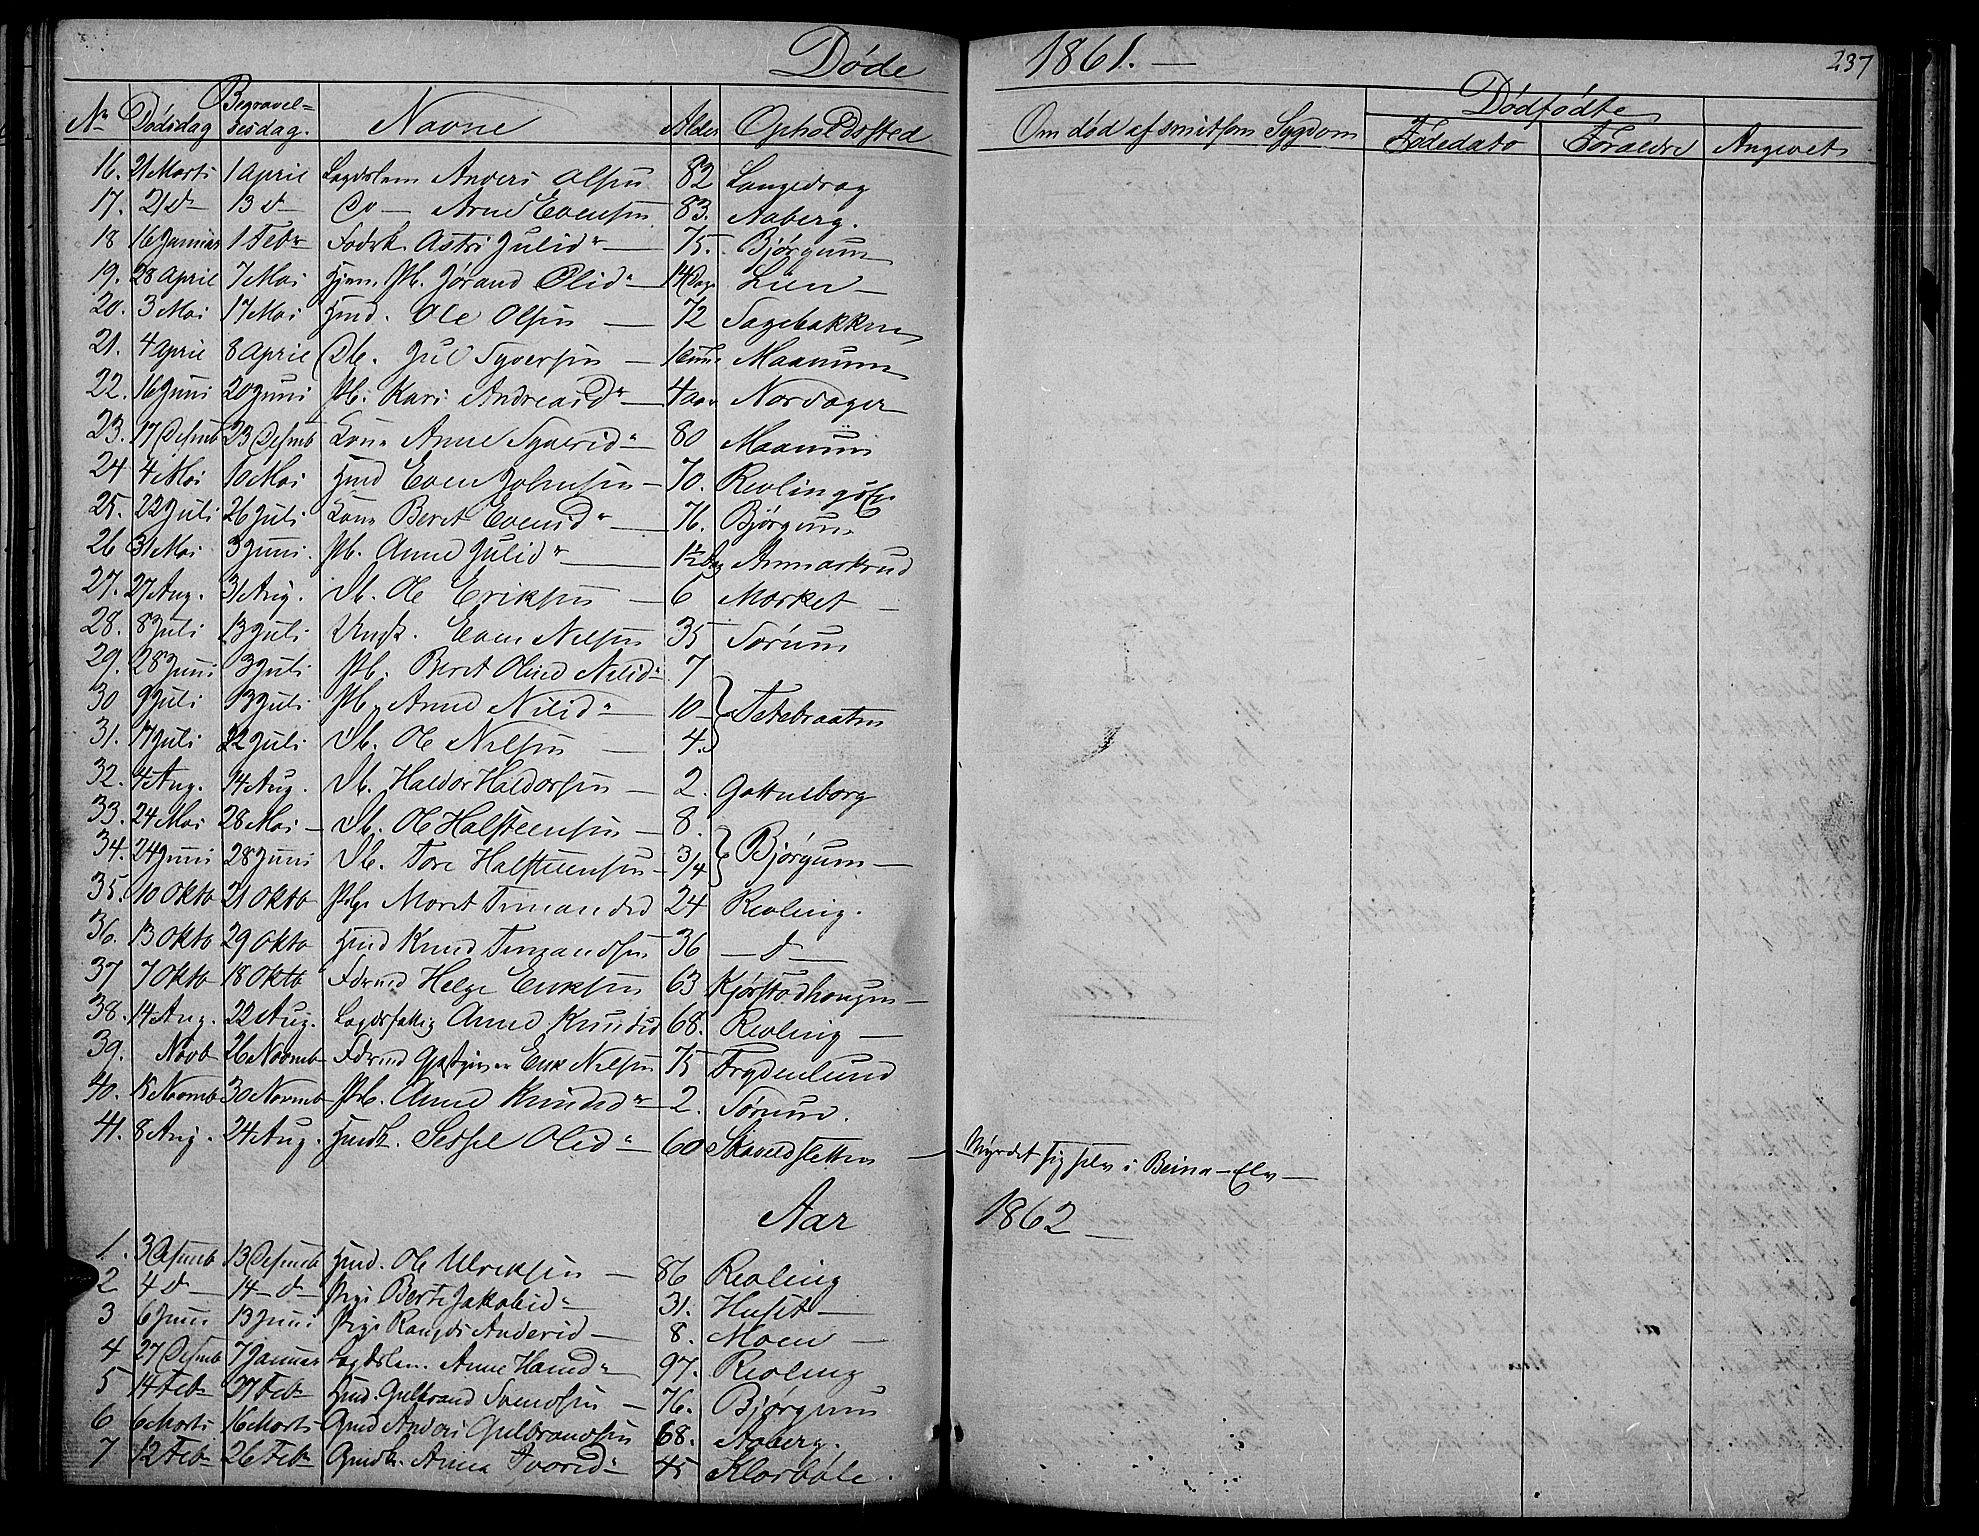 Døde 1861. —
237
Nr Dødsdag Begravel=sesdag. Navne Alder Opholdssted Om død af smitsom Sygdom Dødfødte Fødedato Forældre Angivet
16. 21 Marts 1 April Lægdslem Anders Olsen 82 Langedrag
17. 2 d— 13 d— Do — Arne Evensen 83. Aaberg.
18 16 Januar 1 Febr Astri Julidr — 75. Bjørgum
19. 28 April 7 Mai Jørand Olidr — 14 Dage Lien —
20. 3 Mai 17 Mai Hmd. Ole Olsen — 72 Sagebakken
21. 4 April 8 April Db. Jul Syversen — Maanum
22. 16 Juni 20 Juni Pb. Kari Andreasdr — 4 aar Nordager
23. 17 Desmb 23 Desmb Kone Anne Syveridr — 80 Maanum
24 4 Mai 10 Mai Hmd Even Johnsen — 70. Revlingseie
25. 22 Juli 26 Juli Kone Beret Evensdr — 76. Bjørgum
26 31 Mai 3 Juni. Pb. Anne Julidr — 1½ Dag Anmarkrud
27. 27 Aug. 31 Aug. Db. Ole Eriksen — 6 Mørket —
28. 8 Juli 13 Juli Ungk. Even Nilsen 35 Sørum
29. 28 Juni 3 Juli Pb. Beret Oline Nilsdr 7
30 9 Juli 13 Juli Pb. Anne Nilsdr — 10 — Tetebraaten
31. 17 Juli 22 Juli Db. Ole Nilsen — 4.
32. 4 Aug. 14 Aug. Db. Haldor Haldorsen — 2. Gottenborg
33. 24 Mai 28 Mai — Db. Ole Halsteensen — 8.
34. 24 Juni 28 Juni Db. Tore Halsteensen — 3/4 Bjørgum —
35. 10 Okto 21 Okto Pige Marit Timandsd 24 Revling.
36. 13 Okto 29 Okto Hmd Knud Timandsen 36 — d —
37 7 Okto 18 Okto Helge Eriksen 63 Kjørstadhougen —
38. 14 Aug. 22 Aug. Lægdsfattig Anne Knudsd 68. Revling —
39. Novb 26 Novmb Erik Nilsen 75 Frydenlund
40. 15 Novmb 30 Novmb Pb. Anne Knudsdr — 2. Sørum.
41. 8 Aug. 24 Aug. Hmdk. Sessel Olsdr 60 Skaveldsletten — Myrdet sig selv i Beina-Elv —
Aar 1862 —
1. 3 Desmb 13 Desmb Hmd. Ole Ulriksen — 86 Revling
2 4 d — 14 — d — Pige Berte Jakobsdr 31. Huset —
3 6 Juni 13 Juni Pige Rangdi Andersd — 8. Moen —
4 27 Desmb 7 Januar Lægdslem. Anne Hansdr 97. Revling
5 14 Febr 27 Febr Hmd. Gulbrand Svendsen — 76. Bjørgum
6 6 Marts 16 Marts Gmd Anders Gulbrandsen 68. Aaberg.
7 12 Febr 26 Febr Gmdk. Anna Ivarsdr 45 Klorbøle.